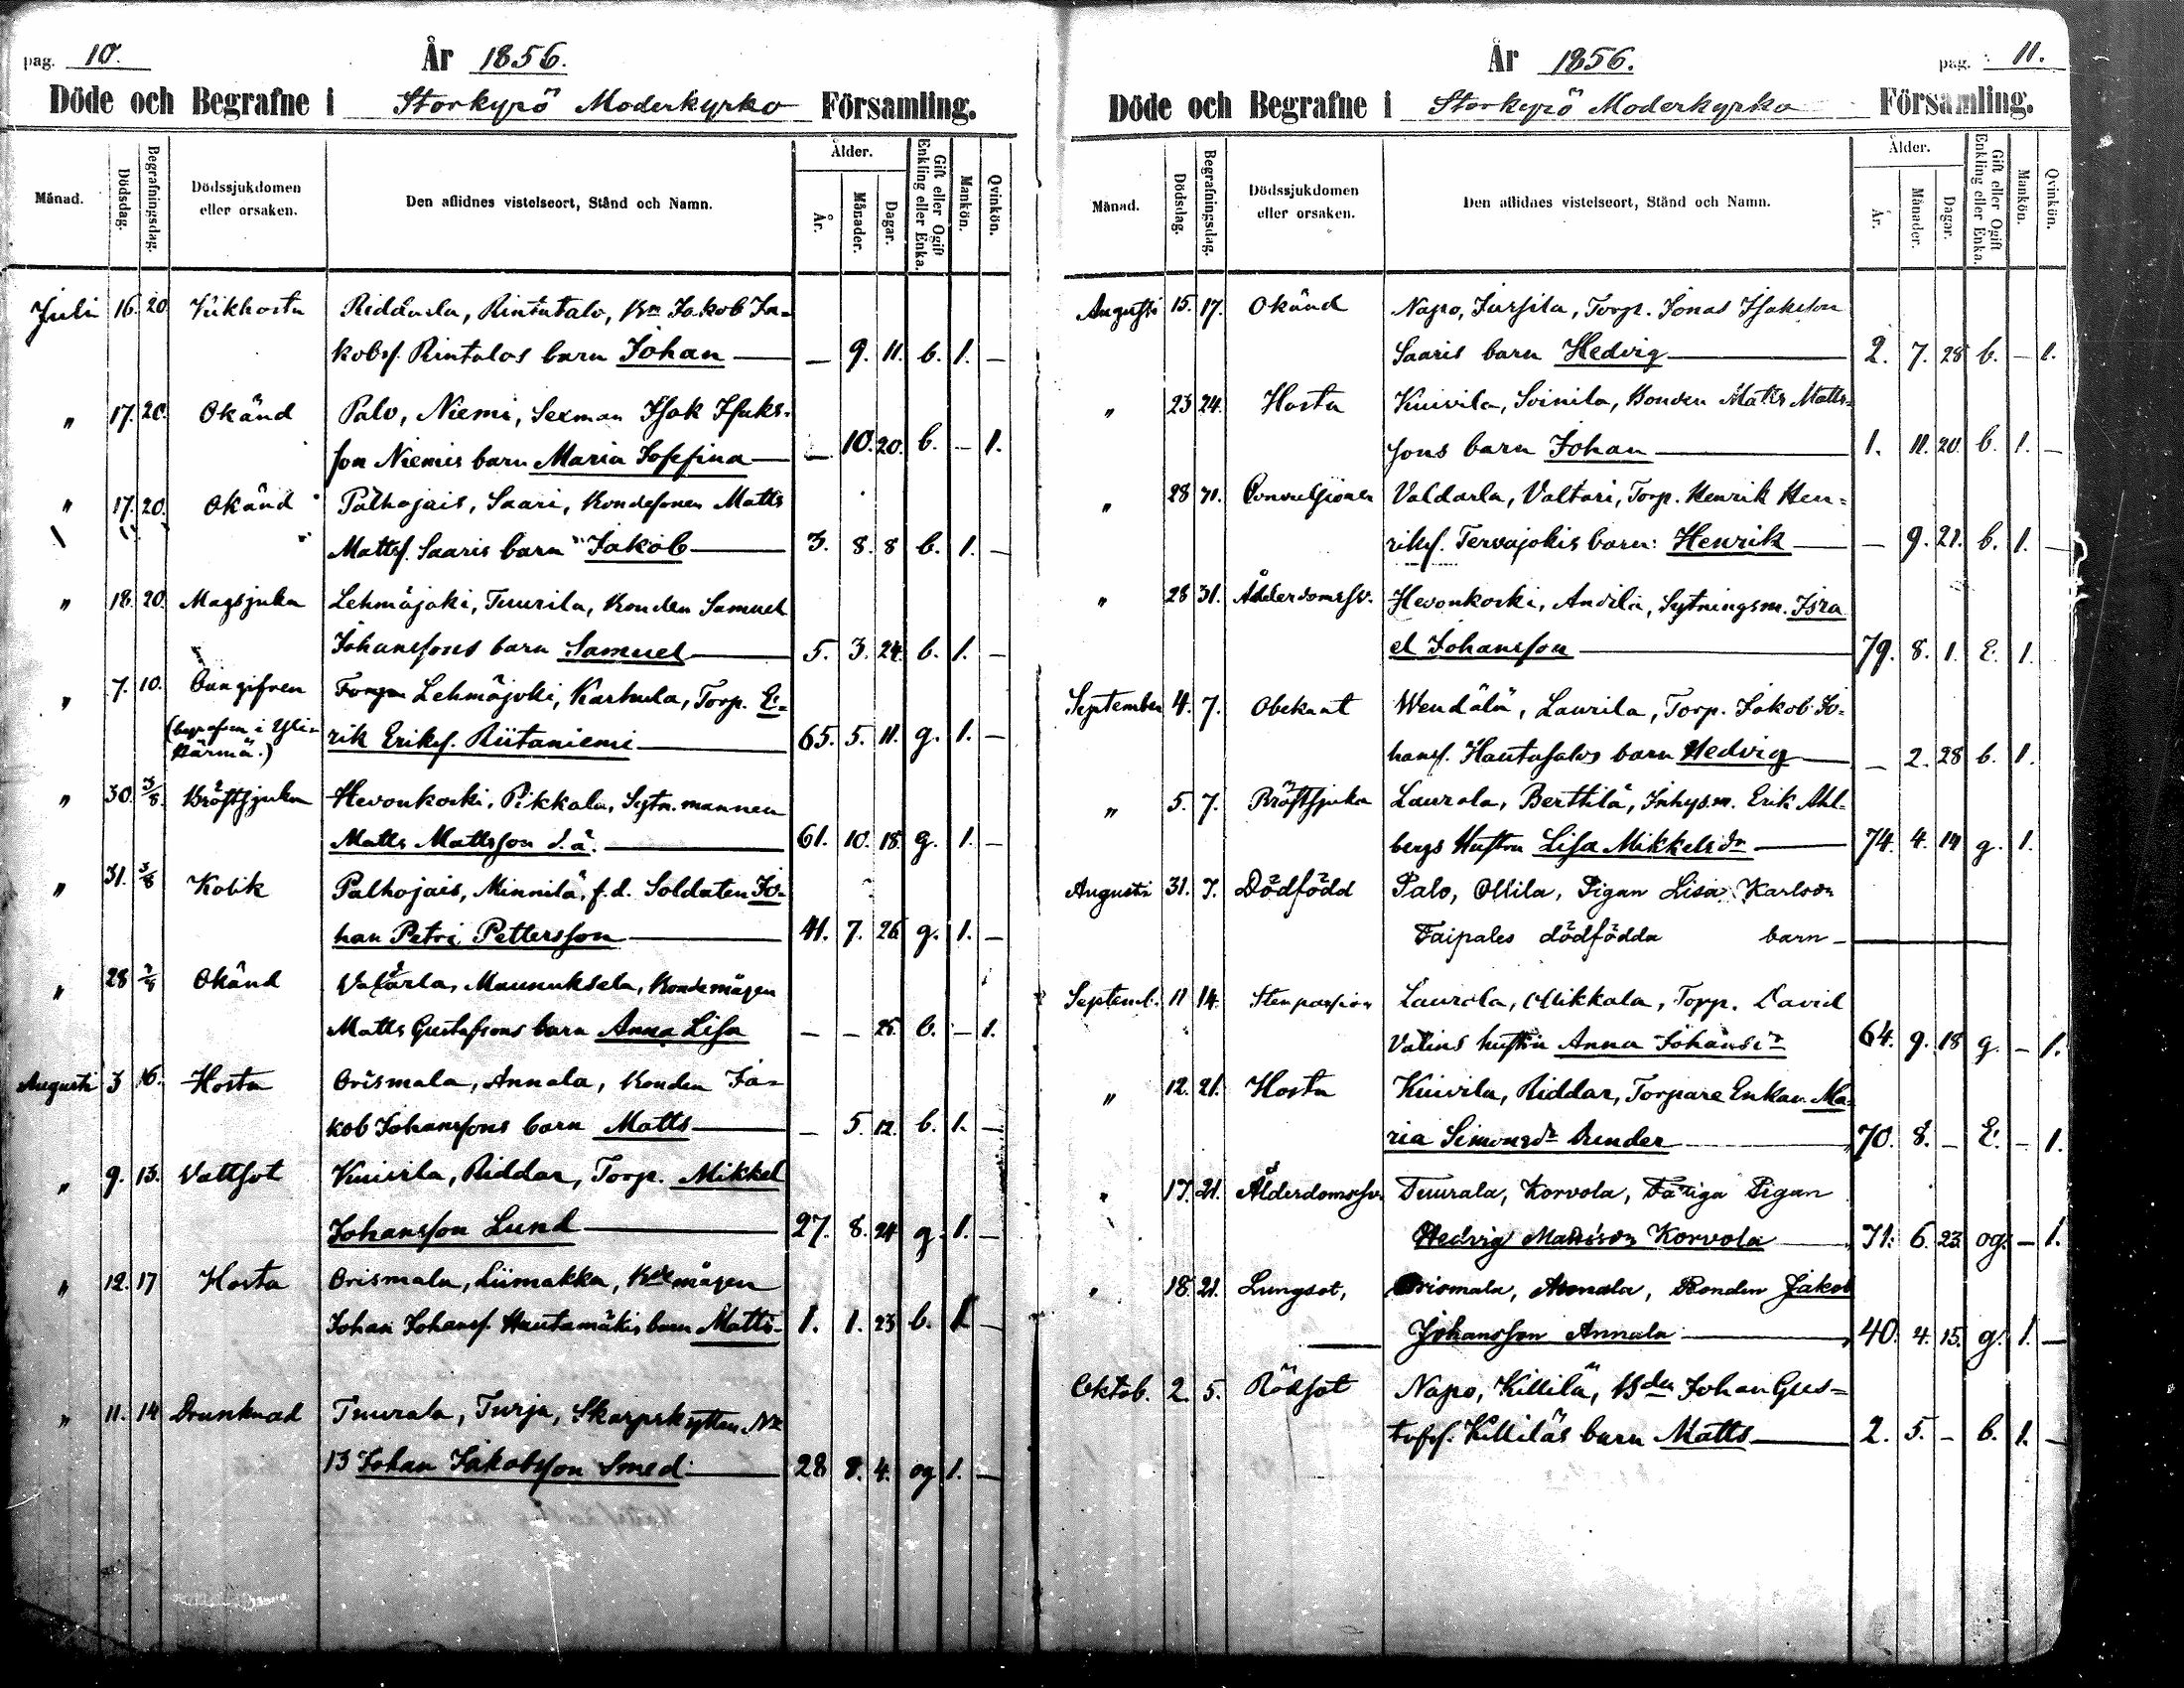 pag. 10.
År 1856.
Döde och Begrafne i Storkyrö Moderkyrko Församling.
Månad.
Dödsdag.
Begrafningsdag.
Dödssjukdomen
eller orsaken.
Den aflidnes vistelseort, Stånd och Namn.
Ålder.
År.
Månader.
Dagar.
Gift eller Ogift
Enkling eller Enka.
Mankön.
Qvinkön.
Juli 16. 20 Kikhosta Riddarla, Rintatalo, Bn Jakob Ja-
kobs. Rintalos barn Johan — — 9. 11. b. 1. —
" 17. 20. Okänd Palo, Niemi, Sexman Isak Isaks-
son Niemis barn Maria Soffina — — 10. 20. b. — 1.
" 17. 20. Okänd Palhojais, Saari, Bondesonen Matts
Mattss. Saaris barn Jakob — 3. 8. 8 b. 1. —
" 18. 20. Magsjuka Lehmäjoki, Tuurila, Bonden Samuel
Johanssons barn Samuel — 5. 3. 24. b. 1. —
" 7. 10. Oangifven Lehmäjoki, Karhula, Torp. E-
(begrafven i Yli-
Härmä.) rik Eriks. Riitaniemi — 65. 5. 11. g. 1. —
" 30. 3/8. Bröstsjuka Hevonkoski, Pikkala, Sytn. mannen
Matts Mattsson d.ä. — 61. 10. 18. g. 1. —
" 31. 3/8 Kolik Palhojais, Minnilä, f.d. Soldaten Jo-
han Petri Pettersson — 41. 7. 26 g. 1. —
" 28 Okänd Valtarla, Maunuksela, Bondemågen
Matts Gustafsons barn Anna Lisa — — 25. b. — 1.
Augusti 3 16. Hosta Orismala, Annala, Bonden Ja-
kob Johanssons barn Matts — — 5. 12. b. 1. —
" 9. 13. Vattsot Kuivila, Riddar, Torp. Mikkel
Johansson Lund — 27. 8. 24 g. 1. —
" 12. 17 Hosta Orismala, Liimakka, Bdemågen
Johan Johans. Hautamäkis barn Matts. 1. 1. 23 b. 1 —
" 11. 14 Drunknad Tuurala, Turja, Skarpskytten No
13 Johan Jakobsson Smed — 28 8. 4. og 1. —
År 1856.
pag. 11.
Döde och Begrafne i Storkyrö Moderkyrko Församling.
Månad.
Dödsdag.
Begrafningsdag.
Dödssjukdomen
eller orsaken.
Den aflidnes vistelseort, Stånd och Namn.
Ålder.
År.
Månader.
Dagar.
Gift eller Ogift
Enkling eller Enka.
Mankön.
Qvinkön.
Augusti 15. 17. Okänd Napo, Jursila, Torp. Jonas Isaksson
Saaris barn Hedvig — 2. 7. 28 b. — 1.
" 23 24. Hosta Kuivila, Soinila, Bonden Matts Matts-
sons barn Johan — 1. 11. 20. b. 1. —
" 28 31. Convulsionen Valdarla, Valtari, Torp. Henrik Hen-
riks. Tervajokis barn: Henrik — — 9. 21. b. 1. —
" 28 31. Ålderdomssv. Hevonkoski, Andila, Sytningsm. Isra
el Johansson — 79. 8. 1. E. 1.
September 4. 7. Obekant Wendälä, Laurila, Torp. Jakob Jo-
hans. Hautasalos barn Hedvig — — 2. 28 b. 1.
" 5. 7. Bröstsjuka Laurola, Berttilä, Inhys.m. Erik Ahl-
bergs Hustru Lisa Mikkelsdr — 74. 4. 14 g. 1.
Augusti 31. 7. Dödfödd Palo, Ollila, Pigan Lisa Karlsdr
Taipales dödfödda barn —
Septemb. 11 14. Stenpassion Laurola, Mikkala, Torp. David
Valins hustru Anna Johansdr 64. 9. 18 g. — 1.
" 12. 21. Hosta Kuivila, Riddar, Torpare Enkan Ma-
ria Simonsdr Runder — 70. 8. — E. — 1.
" 17. 21. Ålderdomssv. Tuurala, Korvola, Fattiga Pigan
Hedvig Mattsdr Korvola — 71. 6. 23. og. — 1.
" 18. 21. Lungsot, Orismala, Annala, Bonden Jakob
Johansson Annala — 40. 4. 15. g. 1. —
Oktob. 2. 5. Rödsot Napo, Killilä, Bden Johan Gus-
tafs. Killiläs barn Matts — 2. 5. — b. 1. —